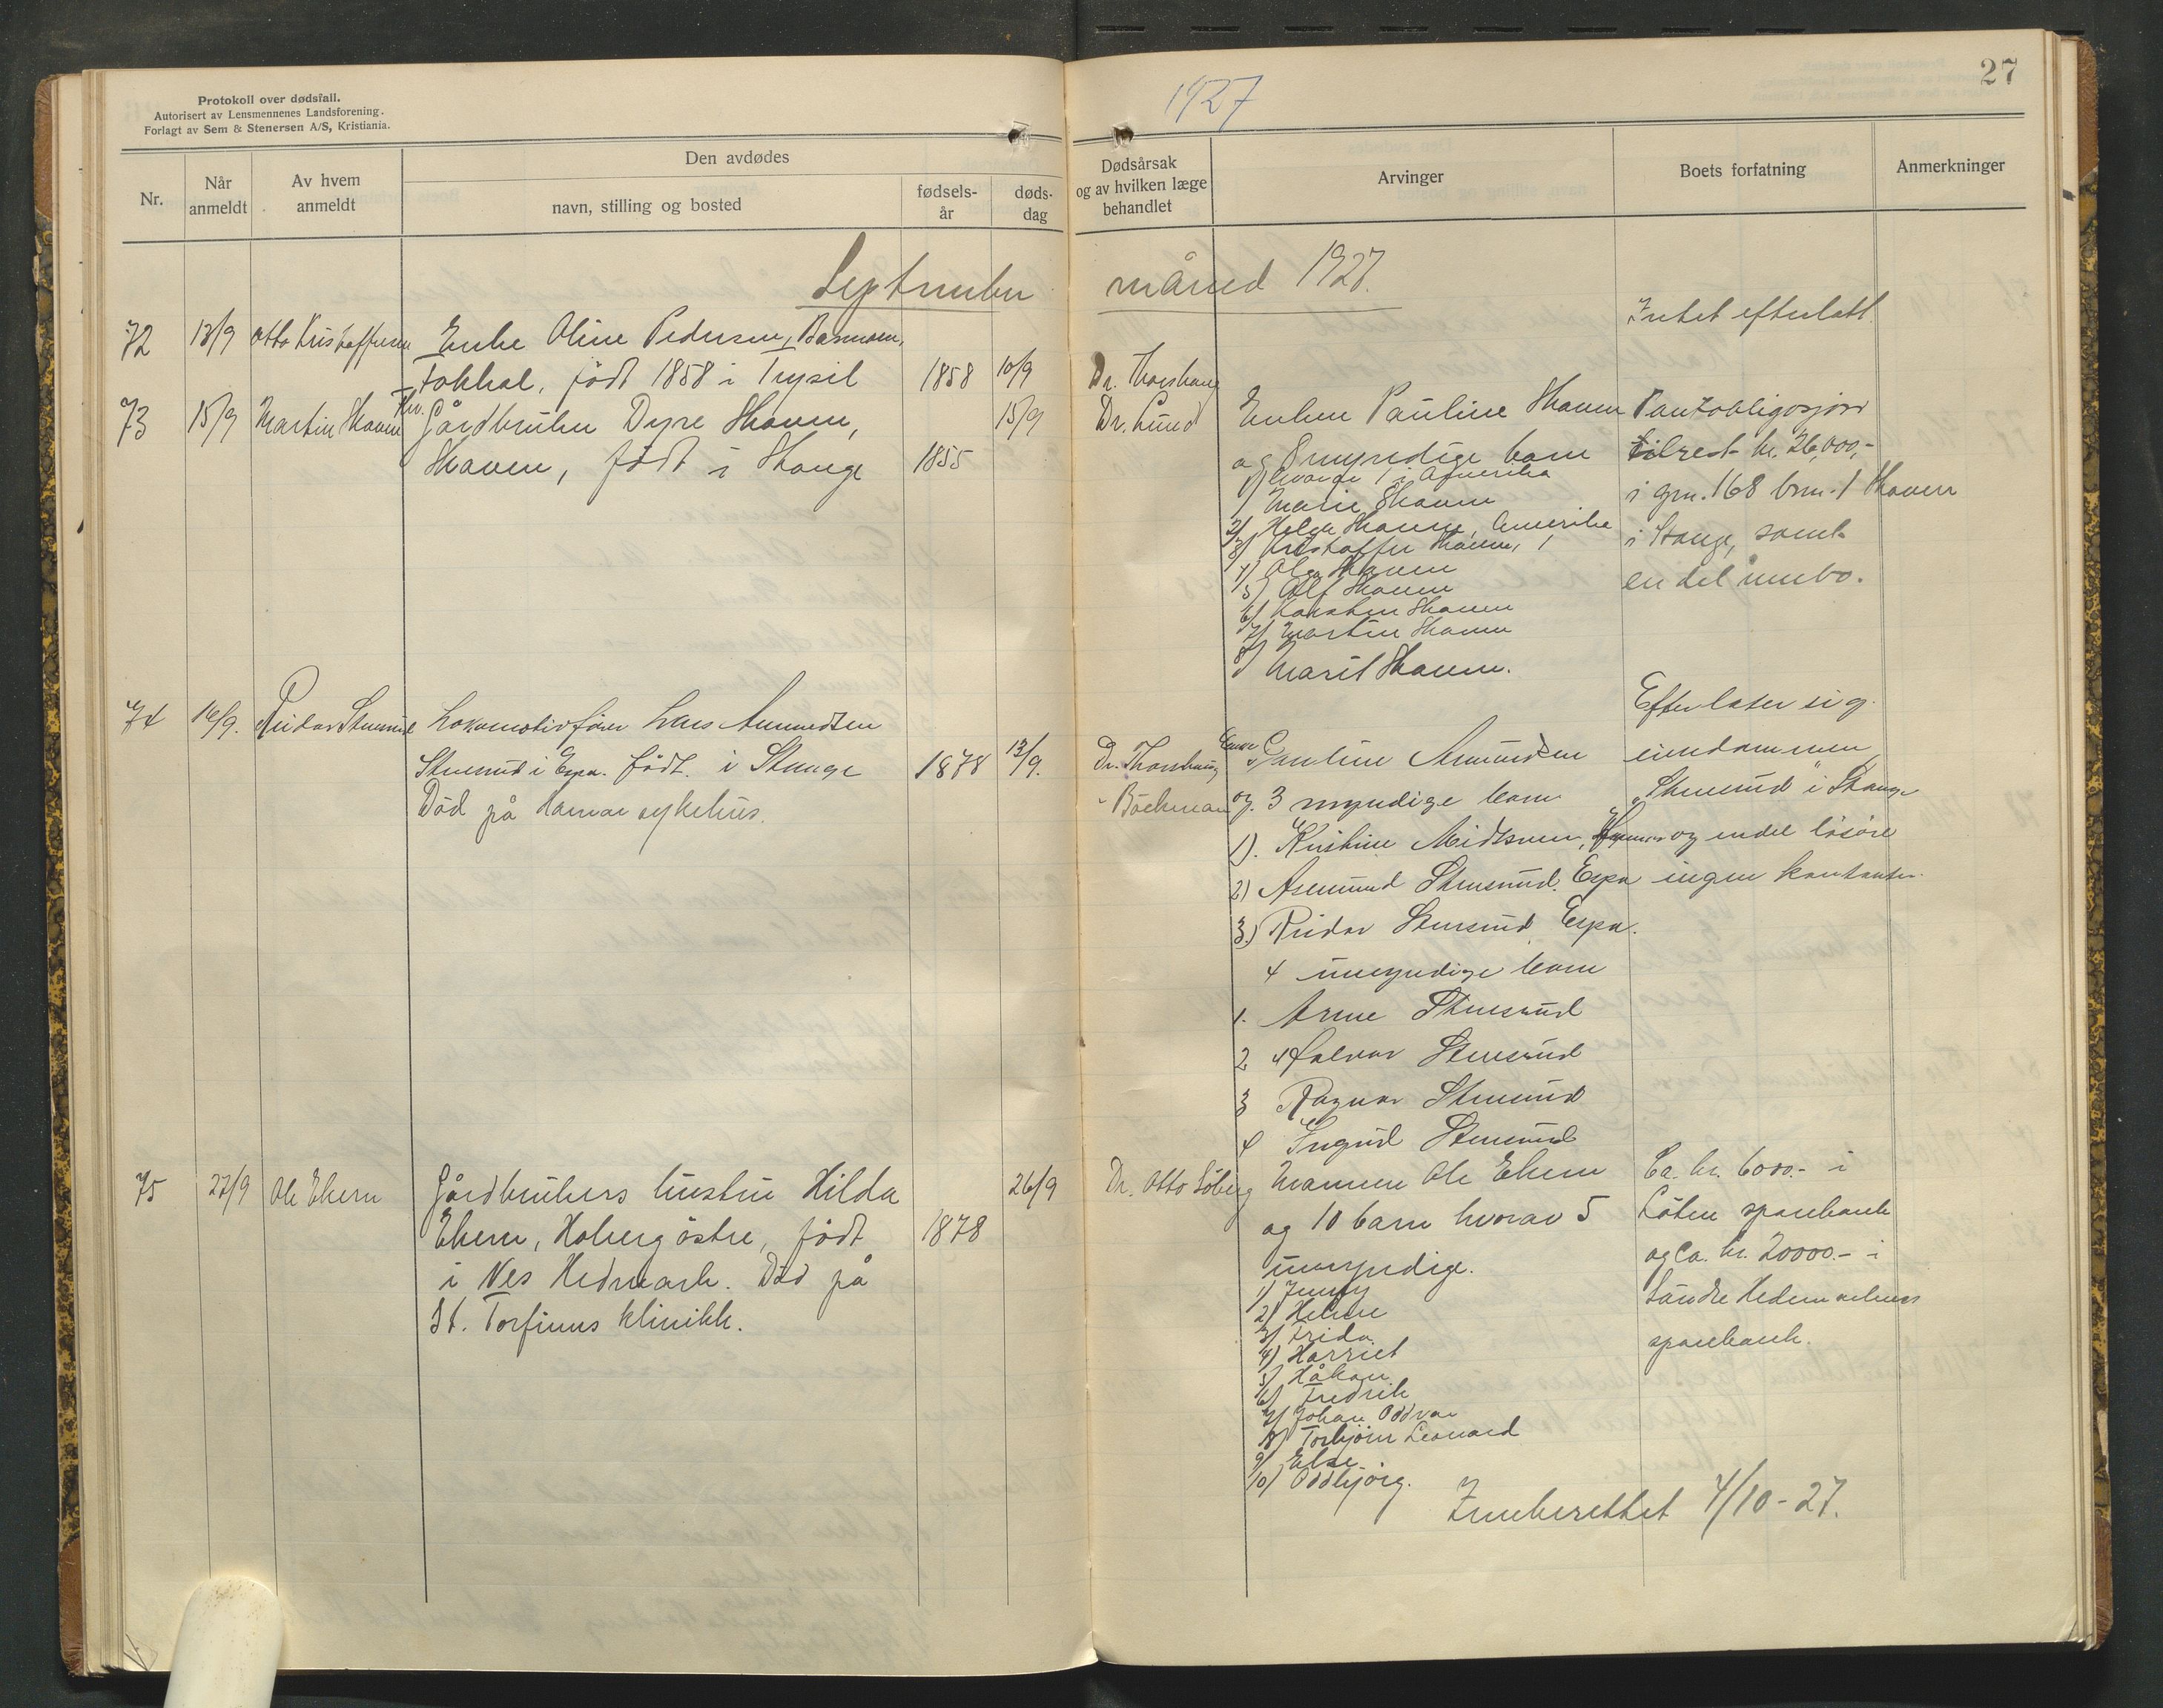 Protokoll over dødsfall.
Autorisert av Lensmennenes Landsforening.
Forlagt av Sem & Stenersen A/S, Kristiania.
1927
27
Nr.
Når anmeldt
Av hvem anmeldt
Den avdødes
navn, stilling og bosted
fødsels-år
døds-dag
Dødsårsak og av hvilken læge behandlet
Arvinger
Boets forfatning
Anmerkninger
September måned 1927.
72 13/9 Otto Kristoffersen Enke Oline Pedersen,
født 1858 i Trysil 1858 10/9 Dr. Thorshaug
Intet efterlatt.
73 15/9 Martin Skaven Gårdbruker Dyre Skaven,
Skaven, født i Stange 1855 15/9 Dr. Lund
Enken Pauline Skaven
og 8 myndige barn
hvorav 1 i Amerika
1) Marie Skaven
2) Helga Skaven, Amerika
3) Kristoffer Skaven,
4) Olga Skaven
5) Alf Skaven
6) Karsten Skaven
7) Martin Skaven
8) Marit Skaven.
Pantobligasjon
tilrest kr. 26,000,-
i grn. 168 brn. 1 Skaven
i Stange, samt
en del innbo.
74 16/9. Reidar Stensrud Lokomotivfører Lars Amundsen
Stensrud i Espa. født i Stange 1878 13/9. Dr. Thorshaug
Død på Hamar sykehus.
Enke Pauline Amundsen
og 3 myndige barn
1). Kristine Midtsveen,
2) Asmund Stensrud, Espa
3.) Reidar Stensrud, Espa.
4 umyndige barn
1. Arne Stensrud
2 Halvor Stensrud
3 Ragnar Stensrud
4 Ingrid Stensrud
Efterlater sig
eiendommen
"Stensrud" i Stange
og endel løsøre
ingen kontanter.
75 27/9 Ole Ekern Gårdbrukers hustru Hilda
Ekern, Hoberg østre, født 1878 26/9 Dr. Otto Löberg
i Nes Hedmark. Død på
St. Torfinns klinikk.
Mannen Ole Ekern
og 10 barn hvorav 5
umyndige.
1) Jenny
2) Helene
3) Frida
4) Harriet
5) Håkon
6) Fredrik
7) Johan Oddvar
8) Torbjørn Leonard
9) Else
10) Oddbjørg.
Ca. kr. 6000.- i
Löten sparebank
og ca. kr. 20000.- i
Söndre Hedemarkens
sparebank.
Innberettet 4/10-27.